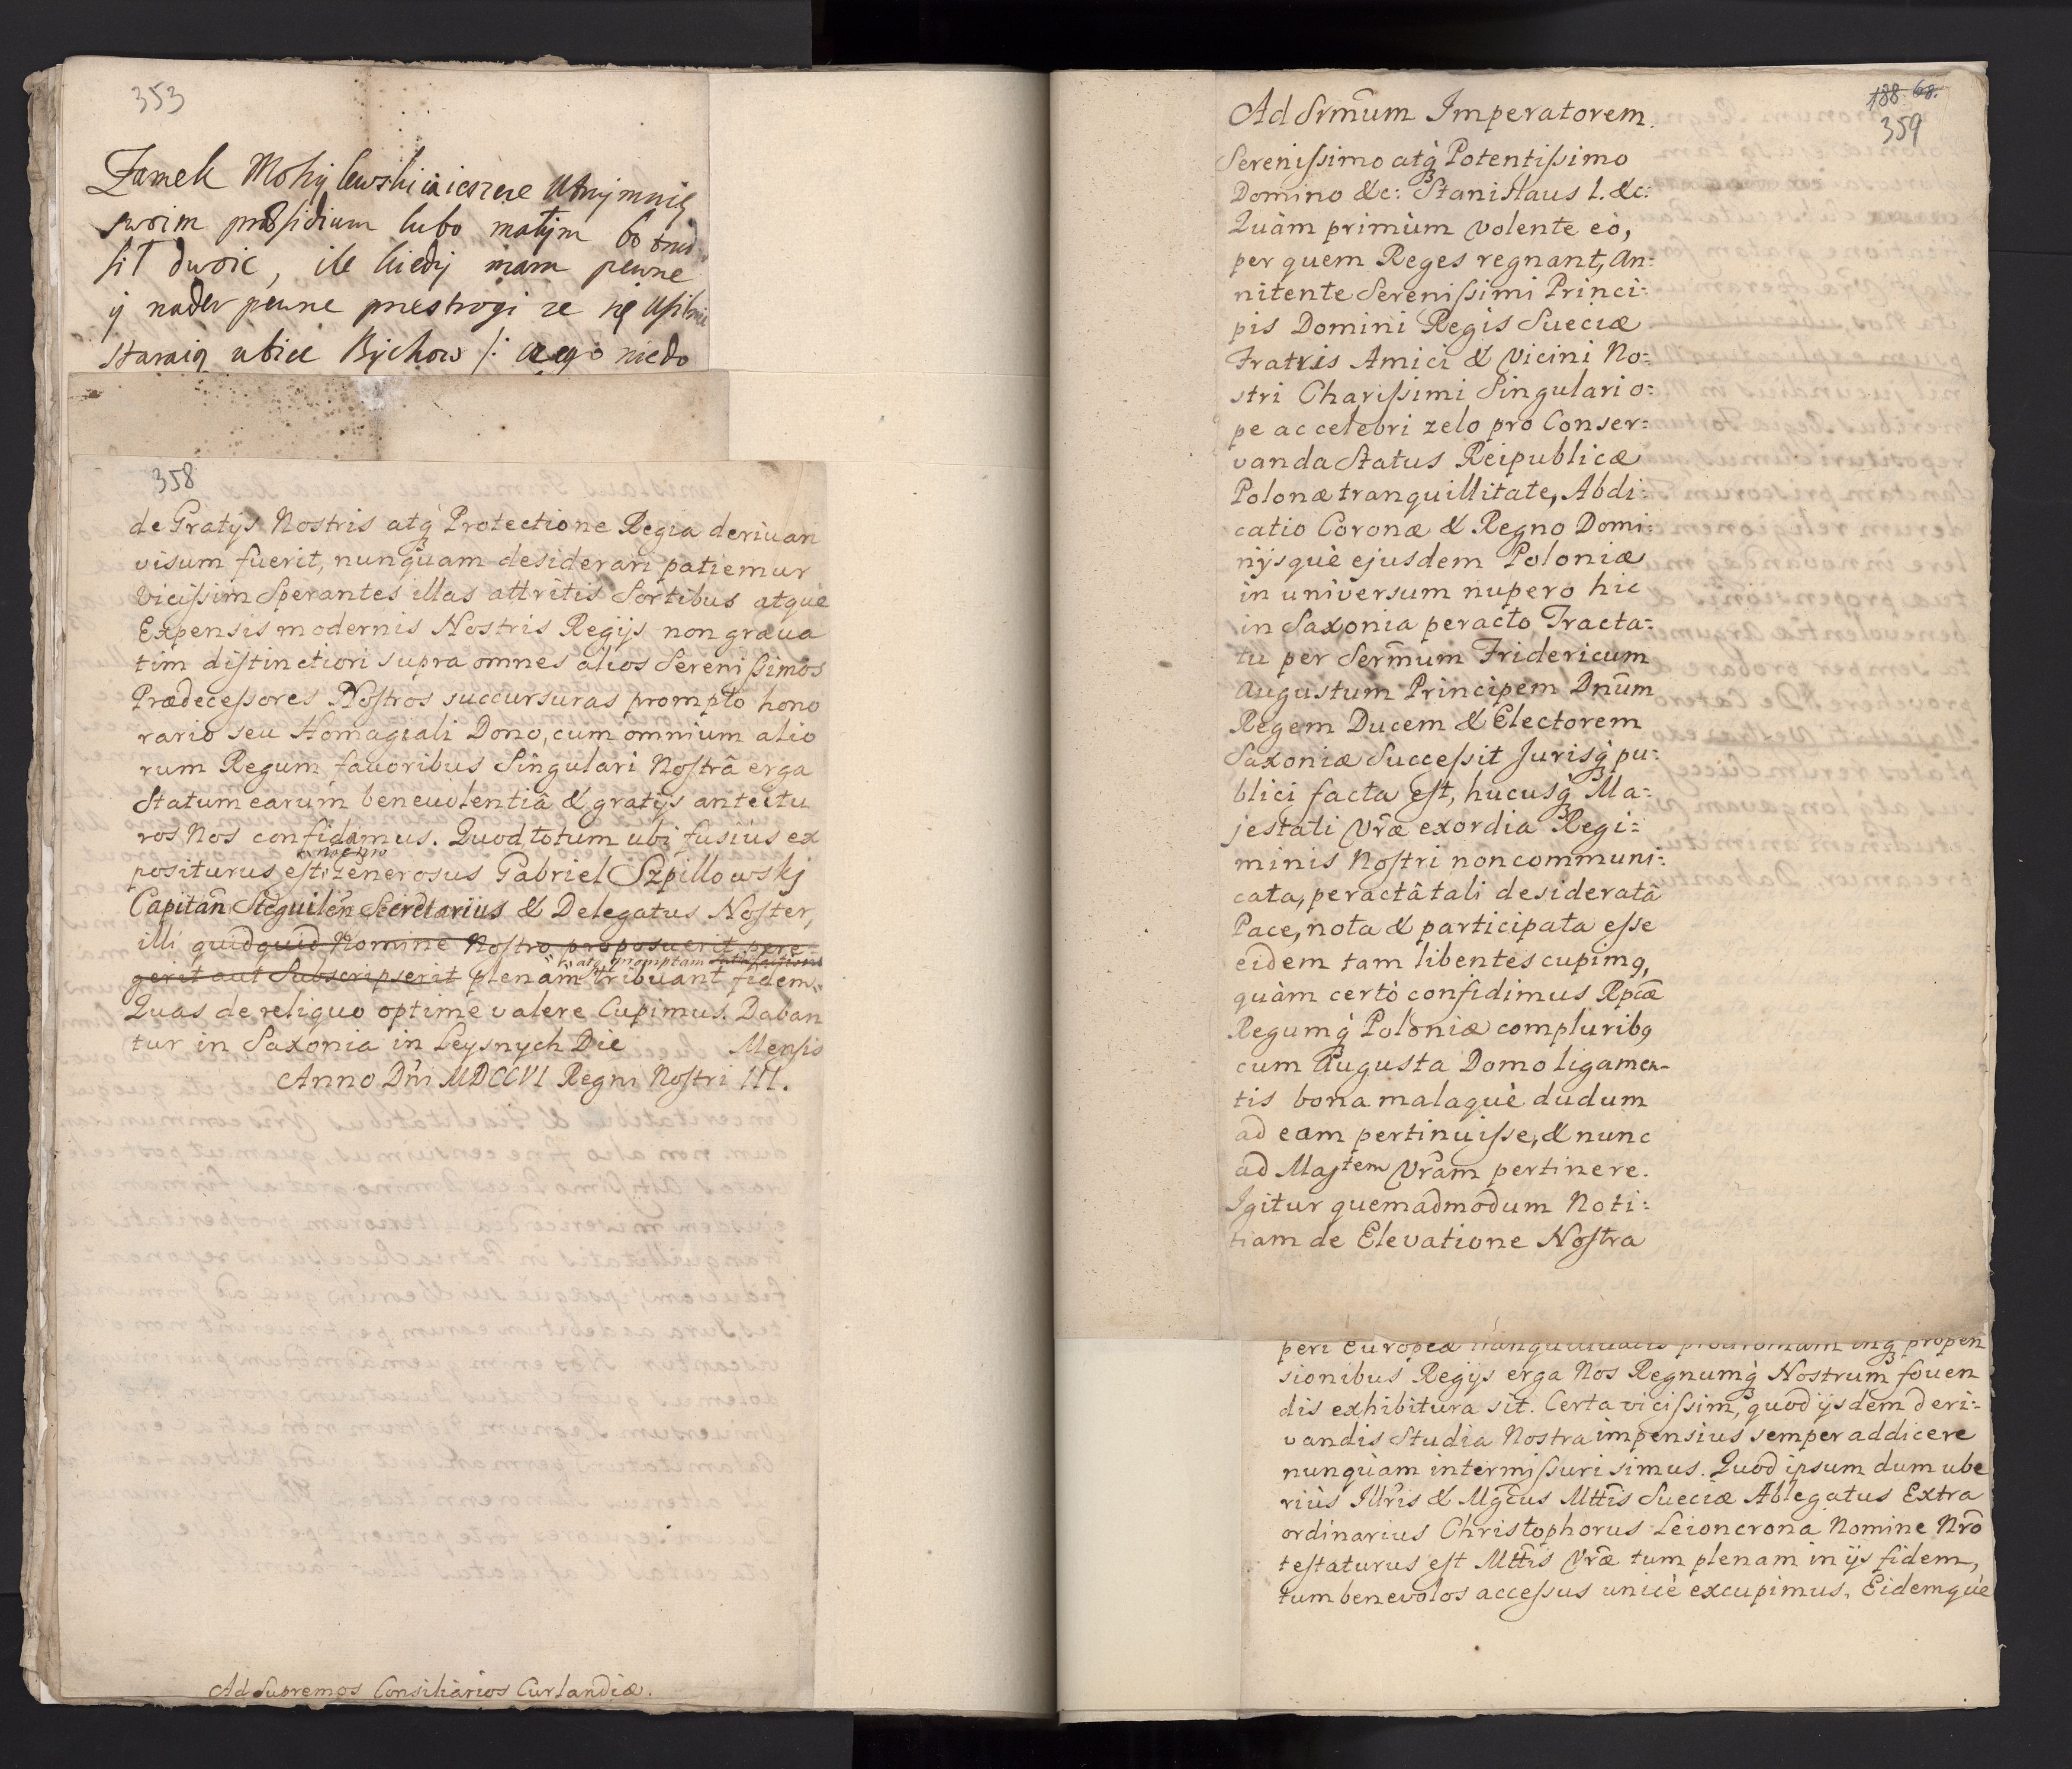 353
Zamek Mohylewski ieszcze utrzymuię
swoim præsidium lubo małym bo
sił dwoić, ile kiedy mam pewne
y nader pewne przestrogi ze się
staraią ubiec Bychow /: czego niedo
358
de Gratijs Nostris atq̀ Protectione Regia deriuari
visum fuerit, nunquam desiderari patiemur
Vicißim Sperantes illas attritis Sortibus atque
Expensis modernis Nostris Regijs non graua
tim distinctiori supra omnes alios Serenißimos
Prædeceßores Nostros succursuras prompto hono
rario seu Homagiali Dono, cum omnium alio
rum Regum fauoribus Singulari Nostrâ erga
Statum earum beneuolentiâ & gratijs anteitu
ros Nos confidamus. Quod totum ubi fusius ex
positurus est Generosus Gabriel Szpillowskj
Capitan̄ Secretarius & Delegatus Noster,
illi quidquid Nomine Nostro proposuerit pere
gerit aut Subscripserit plenam atq̀ promptam tribuant fidem.
Quas de reliquo optime valere Cupimus. Daban
tur in Saxonia in Leysnych Die Mensis
Anno Dn̄i MDCCVI Regni Nostri III.
Ad Supremos Consiliarios Curlandiæ.
188. 68.
359
Ad Srm̄um Imperatorem.
Serenißimo atq̀ Potentißimo
Domino &c: Stanislaus I. &c:
Quàm primùm volente eò,
per quem Reges regnant, An:
nitente Serenißimi Princi:
pis Domini Regis Sueciæ
Fratris Amici & Vicini No:
stri Charißimi Singulari o:
pe ac celebri zelo pro Conser:
vanda Status Reipublicæ
Polonæ tranquillitate, Abdi:
catio Coronæ & Regno Domi:
nijsquè ejusdem Poloniæ
in universum nupero hic
in Saxonia peracto Tracta:
tu per Serm̄um Fridericum
Augustum Principem Dn̄um
Regem Ducem & Electorem
Saxoniæ Succeßit Jurisq̀ pu:
blici facta est, hucusq̀ Ma:
jestati Vr̄æ exordia Regi:
minis Nostri non communi:
cata, peractâ tali desideratâ
Pace, nota & participata eße
eidem tam libentes cupimq,
quàm certò confidimus Rpcæ
Regumq̀ Poloniæ compluribq
cum Augusta Domo ligamen-
tis bona malaquè dudum
ad eam pertinuiße, & nunc
ad Majtem Vr̄am pertinere.
Igitur quemadmodum Noti:
tiam de Elevatione Nostra
peri Europeæ inq̀ propen
sionibus Regijs erga Nos Regnumq̀ Nostrum fouen
dis exhibitura sit. Certa vicißim, quod ijsdem deri:
vandis Studia Nostra impensius semper addicere
nunquàm intermißuri simus. Quod ipsum dum ube
riùs Illr̄is & Mgc̄us Mttis Sueciæ Ablegatus Extra
ordinarius Christophorus Leioncrona Nomine Nr̄o
testaturus est Mttis Vr̄æ tum plenam in ijs fidem,
tum benevolos acceßus unicè excupimus, Eidemquè